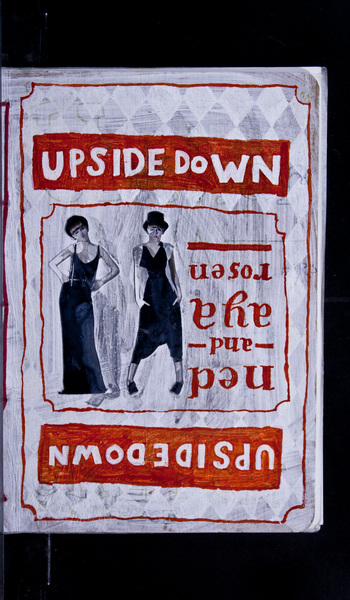 UPSIDE DOWN
ned
-and-
aya
rosen
UPSIDE DOWN